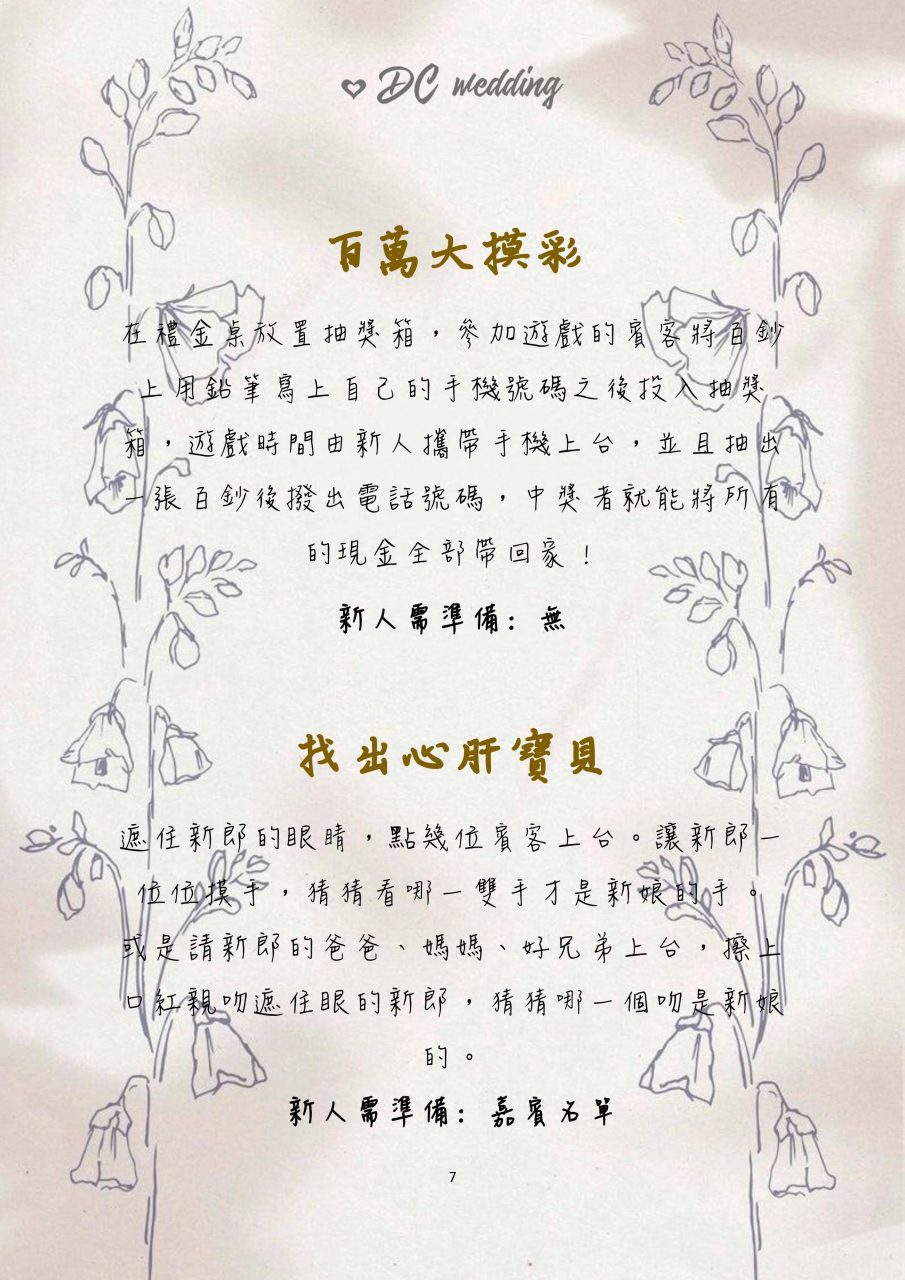 DC wedding
百萬大摸彩
在禮金桌放置抽獎箱，參加遊戲的賓客將百鈔
上用鉛筆寫上自己的手機號碼之後投入抽獎
箱，遊戲時間由新人攜帶手機上台，並且抽出
一張百鈔後撥出電話號碼，中獎者就能將所有
的現金全部帶回家！
新人需準備：無
找出心肝寶貝
遮住新郎的眼睛，點幾位賓客上台。讓新郎一
位位摸手，猜猜看哪一雙手才是新娘的手。
或是請新郎的爸爸、媽媽、好兄弟上台，擦上
口紅親吻遮住眼的新郎，猜猜哪一個吻是新娘
的。
新人需準備：嘉賓名單
7